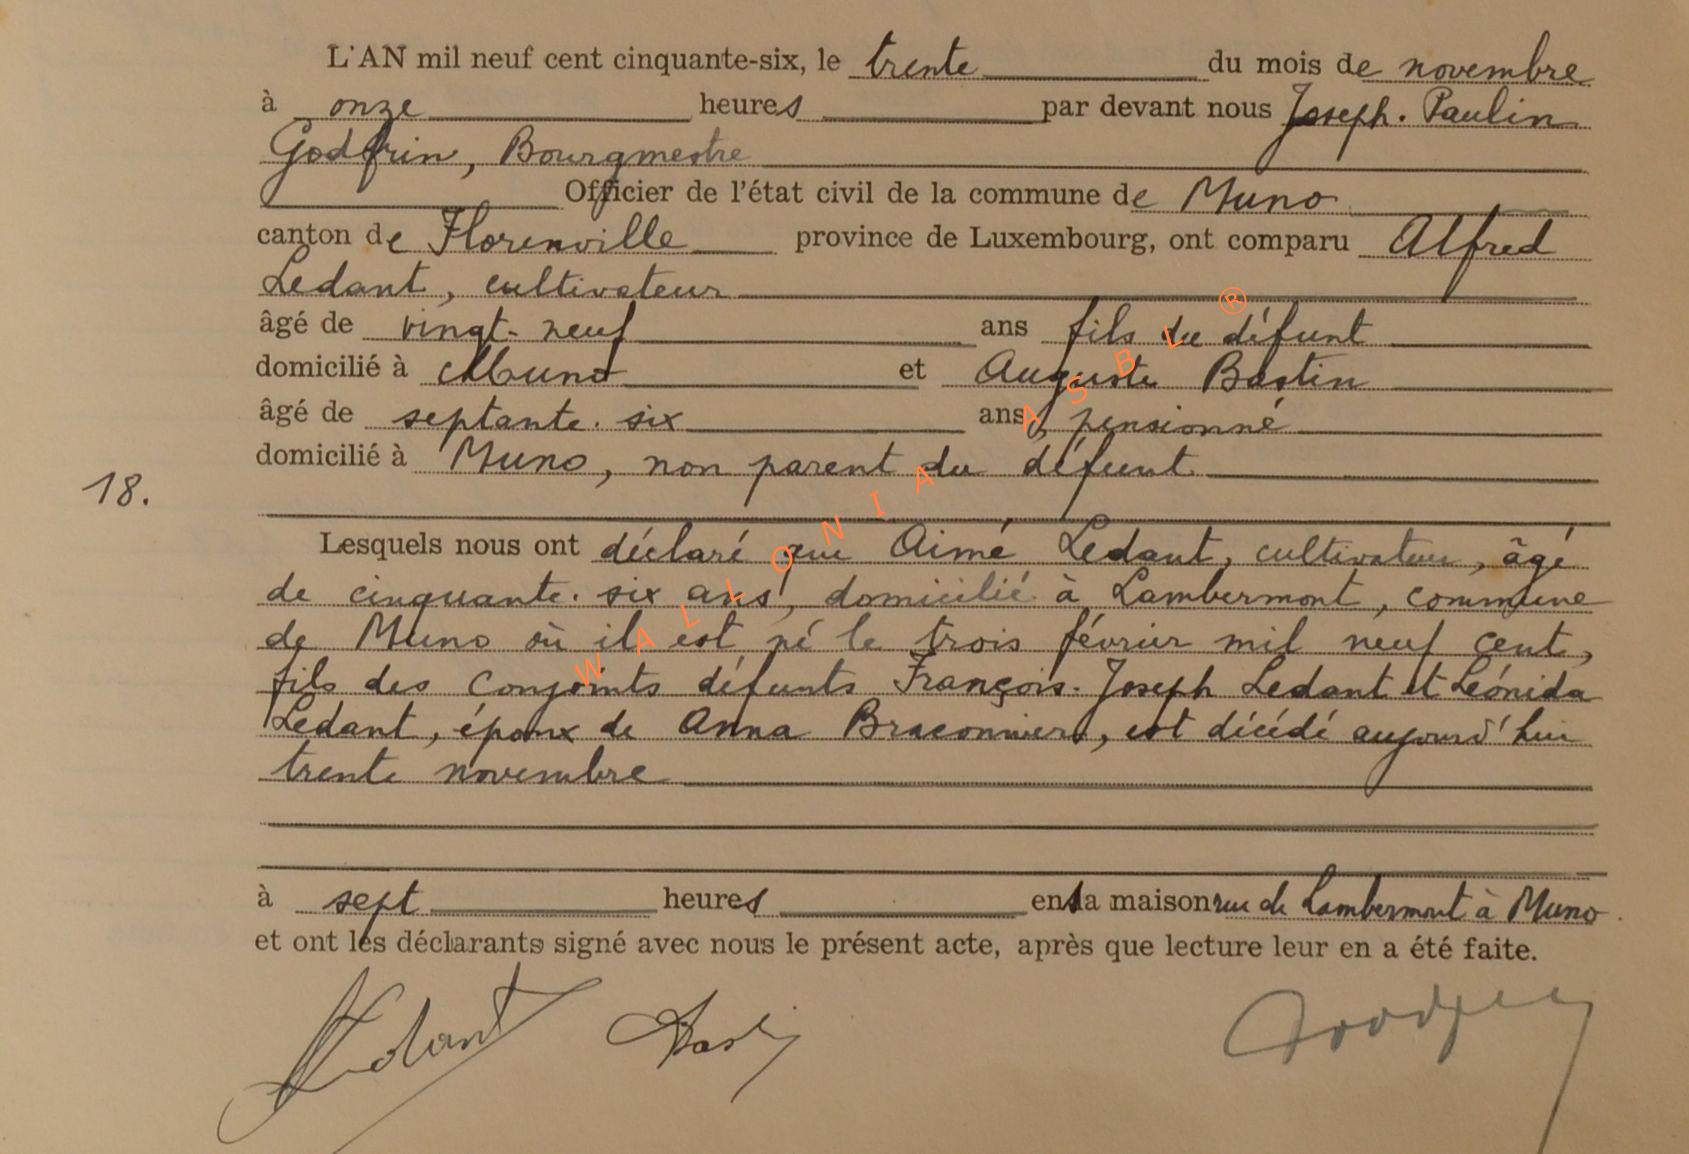 L'AN mil neuf cent cinquante-six, le trente du mois de novembre
à onze heures par devant nous Joseph. Paulin
Godfrin, Bourgmestre
Officier de l'état civil de la commune de Muno
canton de Florenville province de Luxembourg, ont comparu Alfred
Ledant, cultivateur
âgé de vingt-neuf ans fils du défunt
domicilié à Muno et Auguste Bastin
âgé de septante-six ans, pensionné
domicilié à Muno, non parent du défunt
18.
Lesquels nous ont déclaré que Aimé Ledant, cultivateur, âgé
de cinquante-six ans, domicilié à Lambermont, commune
de Muno où il est né le trois février mil neuf cent,
fils des conjoints défunts François-Joseph Ledant et Léonida
Ledant, époux de Anna Braconnier, est décédé aujourd'hui
trente novembre
à sept heures en la maison rue de Lambermont à Muno
et ont les déclarants signé avec nous le présent acte, après que lecture leur en a été faite.
Ledant
WALLONIA ASBL ®